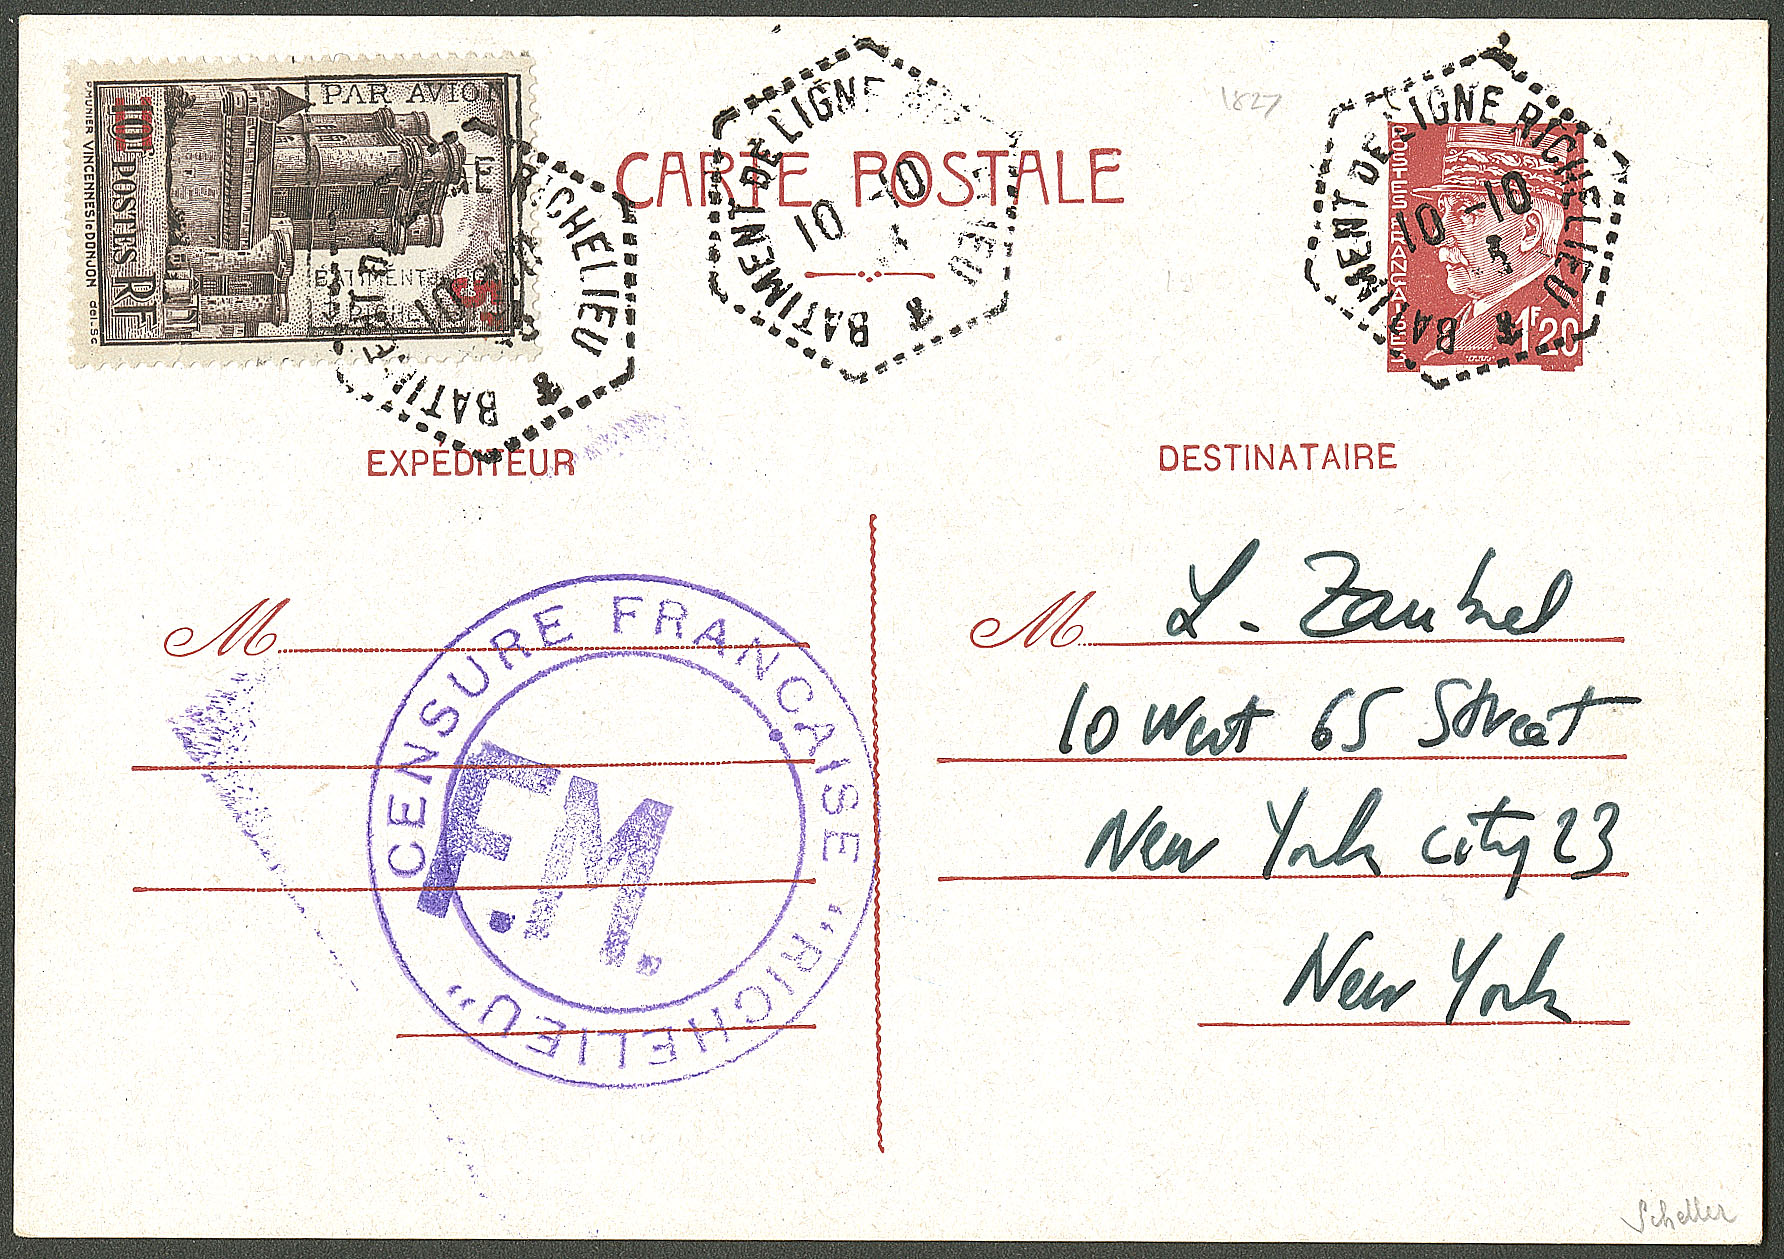 PAR AVION
POSTES RF
VINCENNES . LE DONJON
BATIMENT DE LIGNE RICHELIEU
10 -10
BATIMENT DE LIGNE
10 -10
BATIMENT DE LIGNE RICHELIEU
10 -10
5
1827
CARTE POSTALE
POSTES FRANÇAISES
1F20
EXPÉDITEUR
DESTINATAIRE
M
CENSURE FRANCAISE "RICHELIEU"
F.M.
M L. Zaubel
10 West 65 Street
New York City 23
New York
Scheller